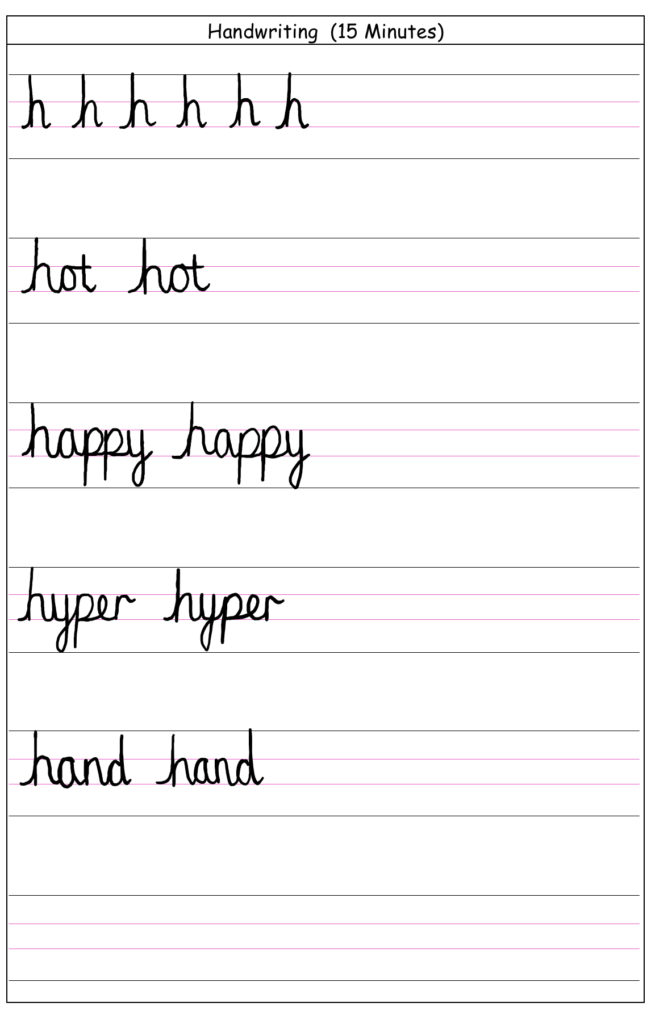 Handwriting (15 Minutes)
h h h h h h
hot hot
happy happy
hyper hyper
hand hand